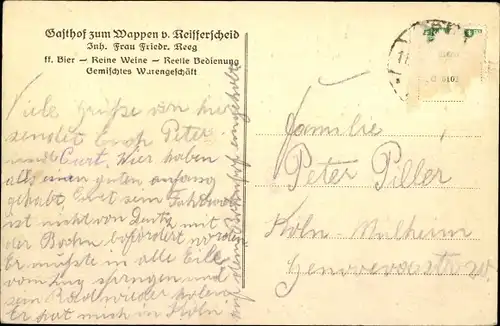 Gasthof zum Wappen v. Reifferscheid
Inh. Frau Friedr. Reeg
ff. Bier — Reine Weine — Reelle Bedienung
Gemischtes Warengeschäft
Viele Grüße von hier
sendet Euch Peter
und Curt. Wir haben
also einen guten anfang
gehabt, Curt sein Fahrrad
ist nicht von Deutz mit
der Bahn befördert worden
Er mußte in alle Eile
vom Zug springen und
sein Rad wieder holen
Er hat mich in Köln
auf dem Bahnhof eingeholt
Familie
Peter Piller
Köln-Mülheim
Genovevastr.